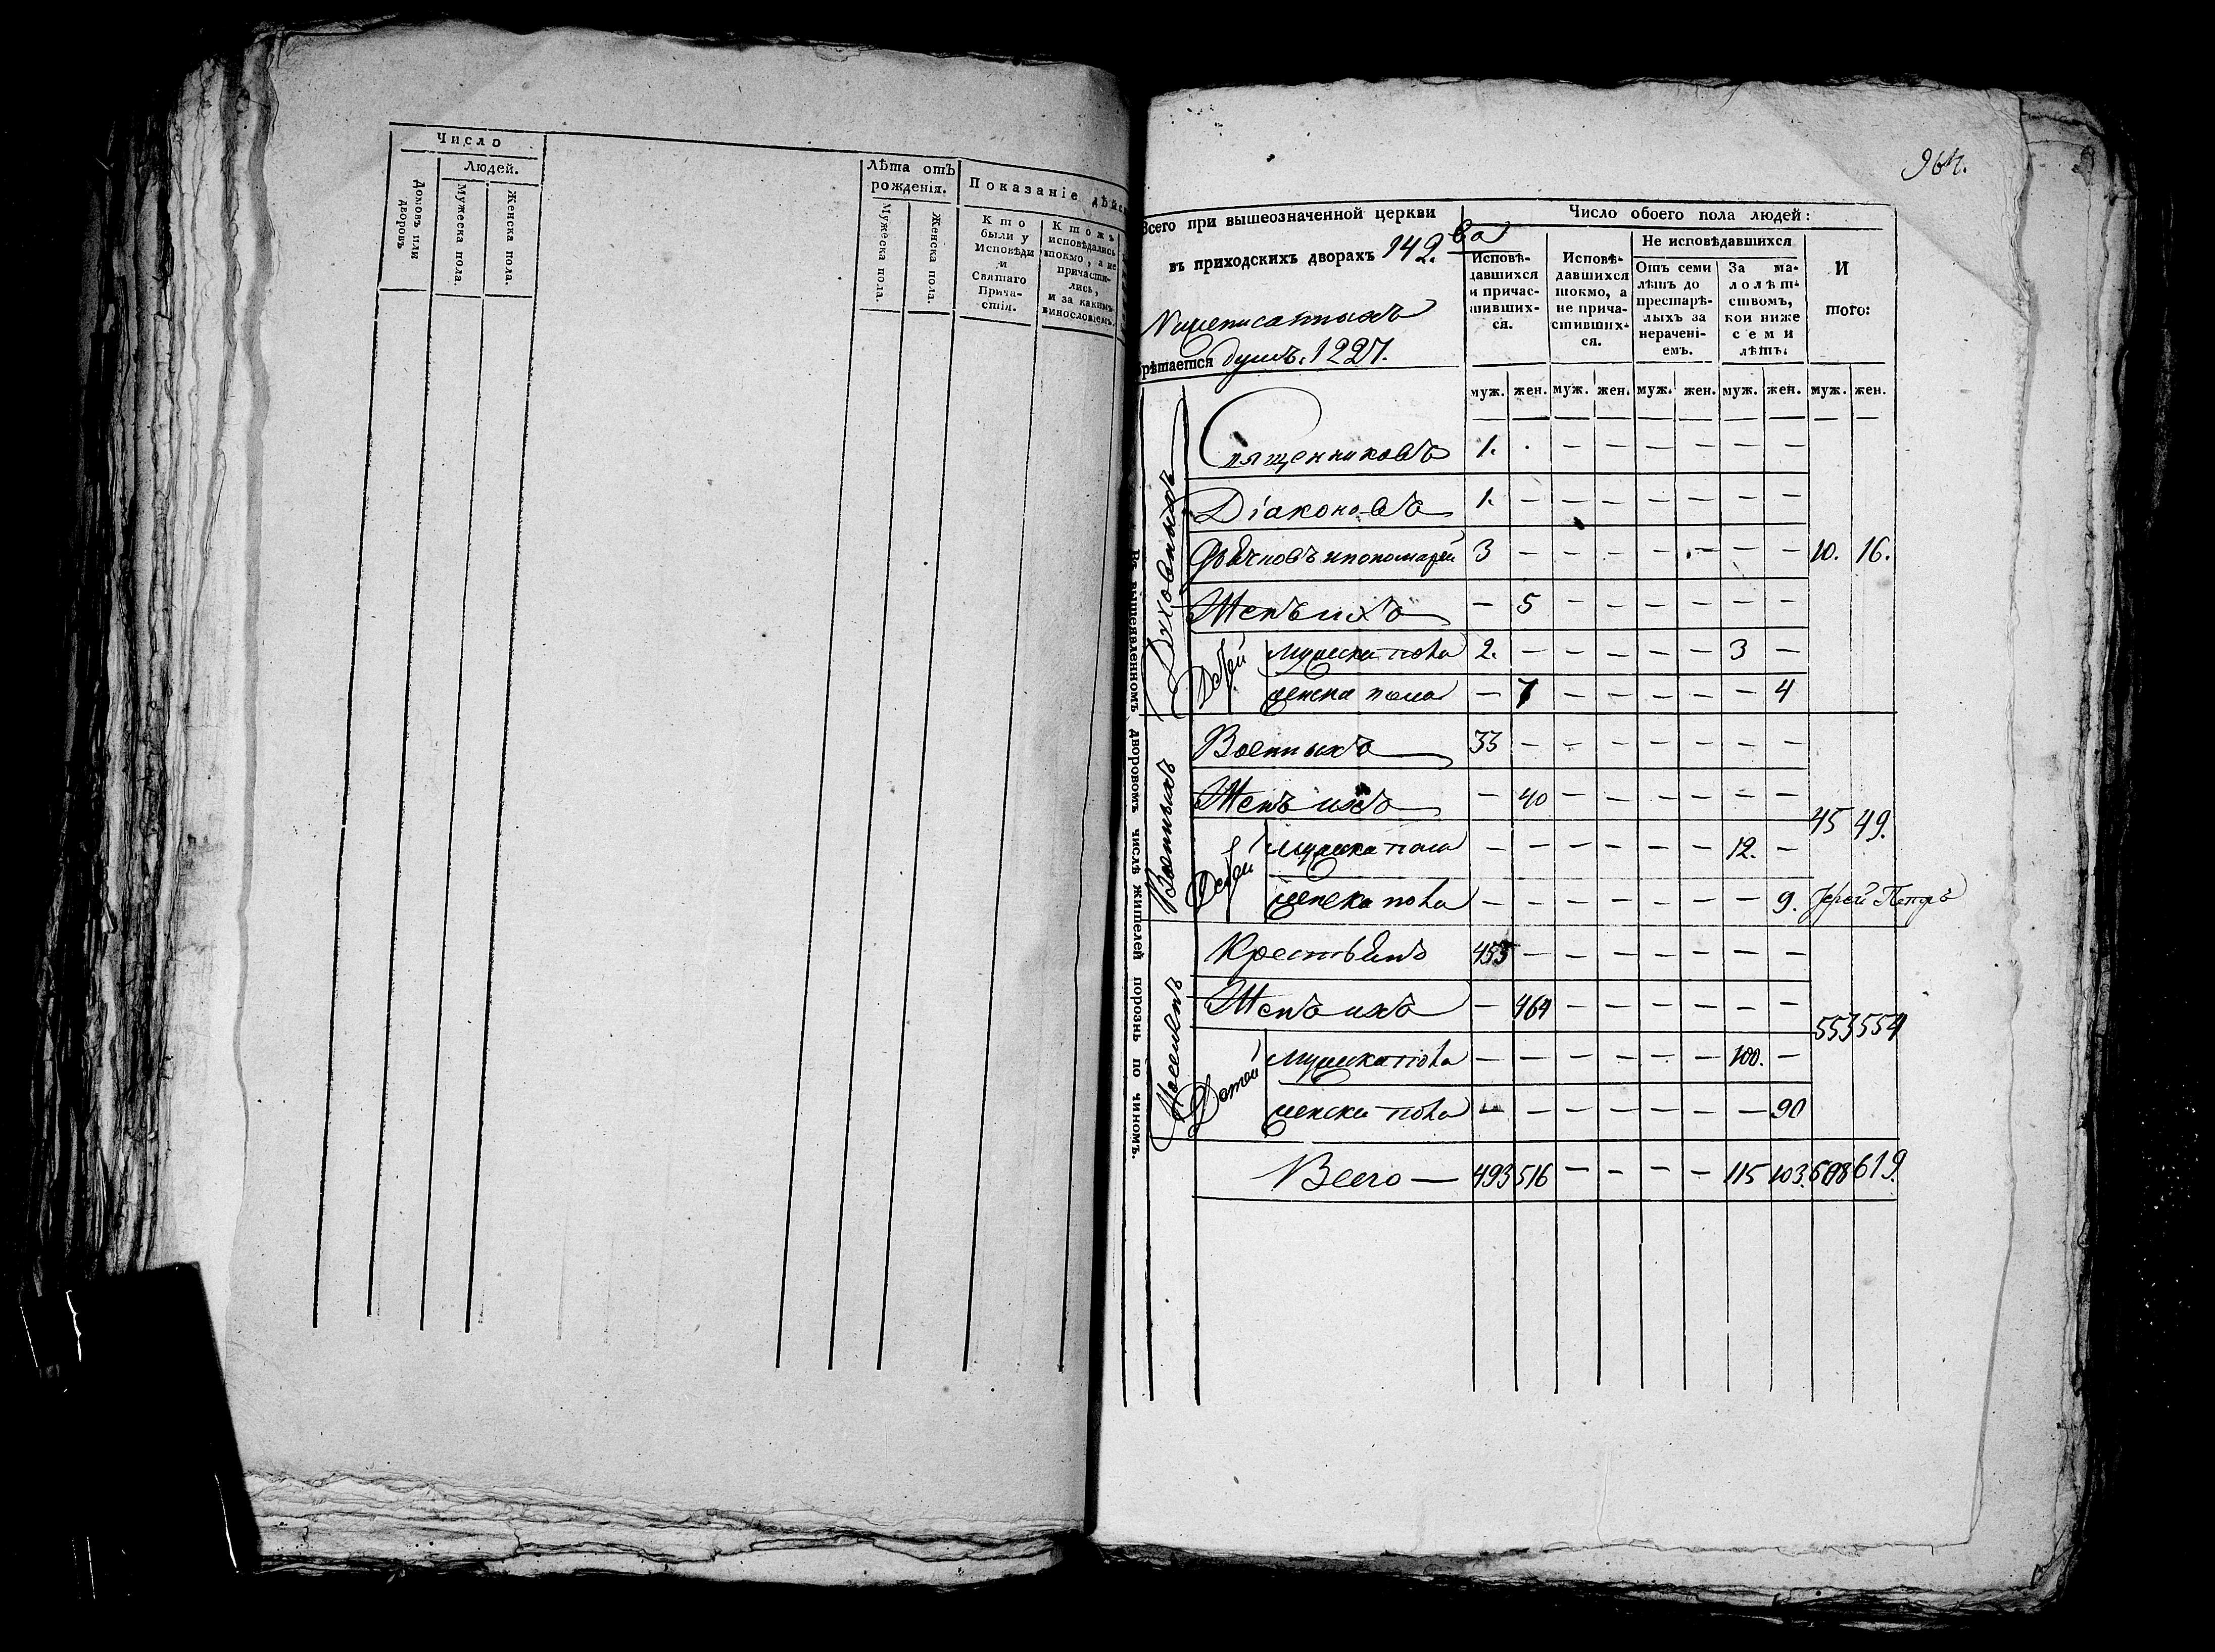 Число
Людей.
Домовъ или дворовъ
Мужеска пола.
Женска пола.
Лѣта отъ рожденія.
Мужеска пола.
Женска пола.
Показаніе
Кто были у Исповѣди и Святаго Причастія.
Ктожъ исповѣдались токмо, а не причастились, и за какимъ винословіемъ.
964.
Всего при вышеозначенной церкви
въ приходскихъ дворахъ 142.
душъ. 1227.
Число обоего пола людей:
Исповѣдавшихся и причастившихся.
Исповѣдавшихся токмо, а не причастившихся.
Не исповѣдавшихся
Отъ семи лѣтъ до престарѣлыхъ за нераченіемъ.
За малолѣтствомъ, кои ниже семи лѣтъ.
И того:
муж. жен. муж. жен. муж. жен. муж. жен. муж. жен.
Въ вышеявленномъ дворовомъ числѣ жителей порознь по чиномъ.
Духовныхъ
Священниковъ 1. . — — — — — —
Діаконовъ 1. — — — — — — —
Дьячковъ и пономарей 3 — — — — — — — 10. 16.
Женъ ихъ — 5 — — — — — —
Дѣтей
Мужеска пола 2. — — — — — 3 —
женска пола — 7 — — — — — 4
Военныхъ
Военныхъ 33 — — — — — — —
Женъ ихъ — 40 — — — — — —
45 49.
Дѣтей
Мужеска пола — — — — — — 12. —
женска пола — — — — — — — 9.
Іерей Петръ
Крестьянъ 453 — — — — — — —
Женъ ихъ — 464 — — — — — —
553 554
Детей
Мужеска пола — — — — — — 100. —
женска пола — — — — — — — 90
Всего — 493 516 — — — — 115 103. 608 619.